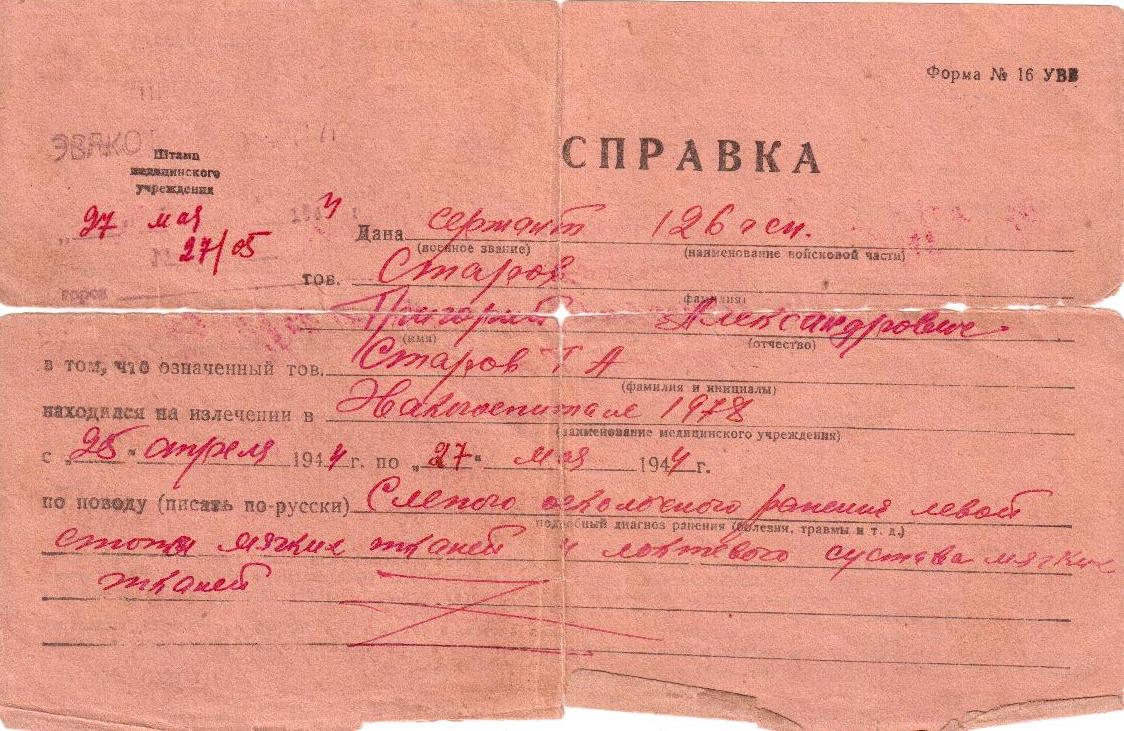 Форма № 16 УВВ
СПРАВКА
ЭВАКО
Штамп
медицинского
учреждения
27 мая 194 4
27/05
город
Дана сержант 126
(военное звание) (наименование войсковой части)
тов. Старов
(фамилия)
Григорий Александрович
(имя) (отчество)
в том, что означенный тов. Старов Г А
(фамилия и инициалы)
находился на излечении в Эвакогоспитале 1978
(наименование медицинского учреждения)
с „25“ апреля 1944 г. по „27“ мая 1944 г.
по поводу (писать по-русски) Слепого осколочного ранения левой
подробный диагноз ранения (болезни, травмы и т. д.)
стопы мягких тканей и локтевого сустава мягких
тканей